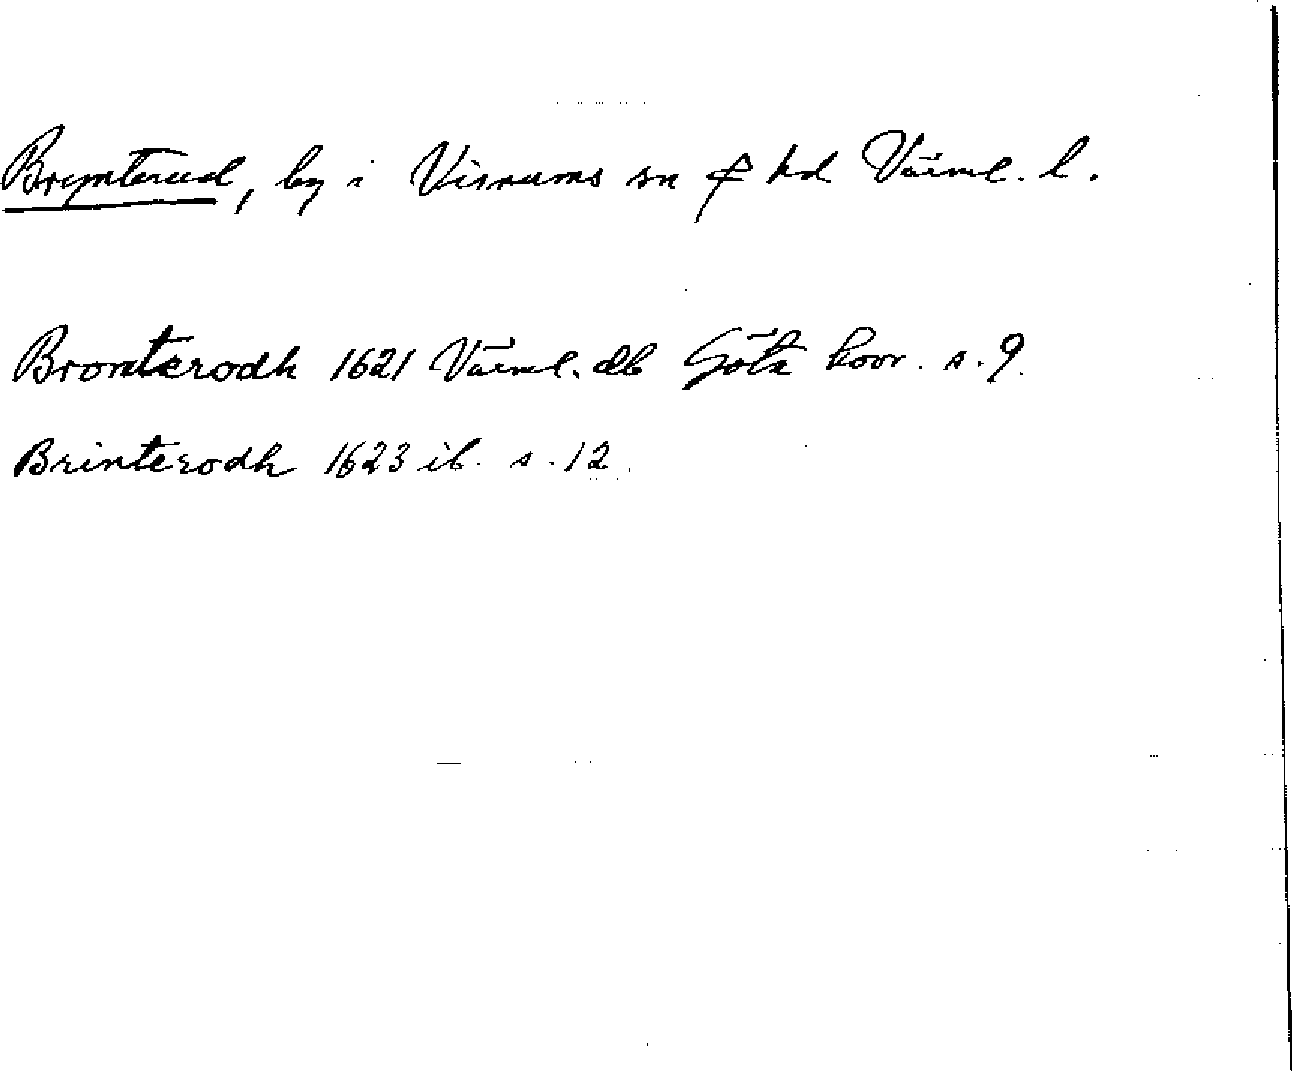 Brynterud, by i Visnums sn & hd Värml. l.
Bronterodh 1621 Värml. db Göta hovr. s. 9.
Brinterodh 1623 ib. s. 12.